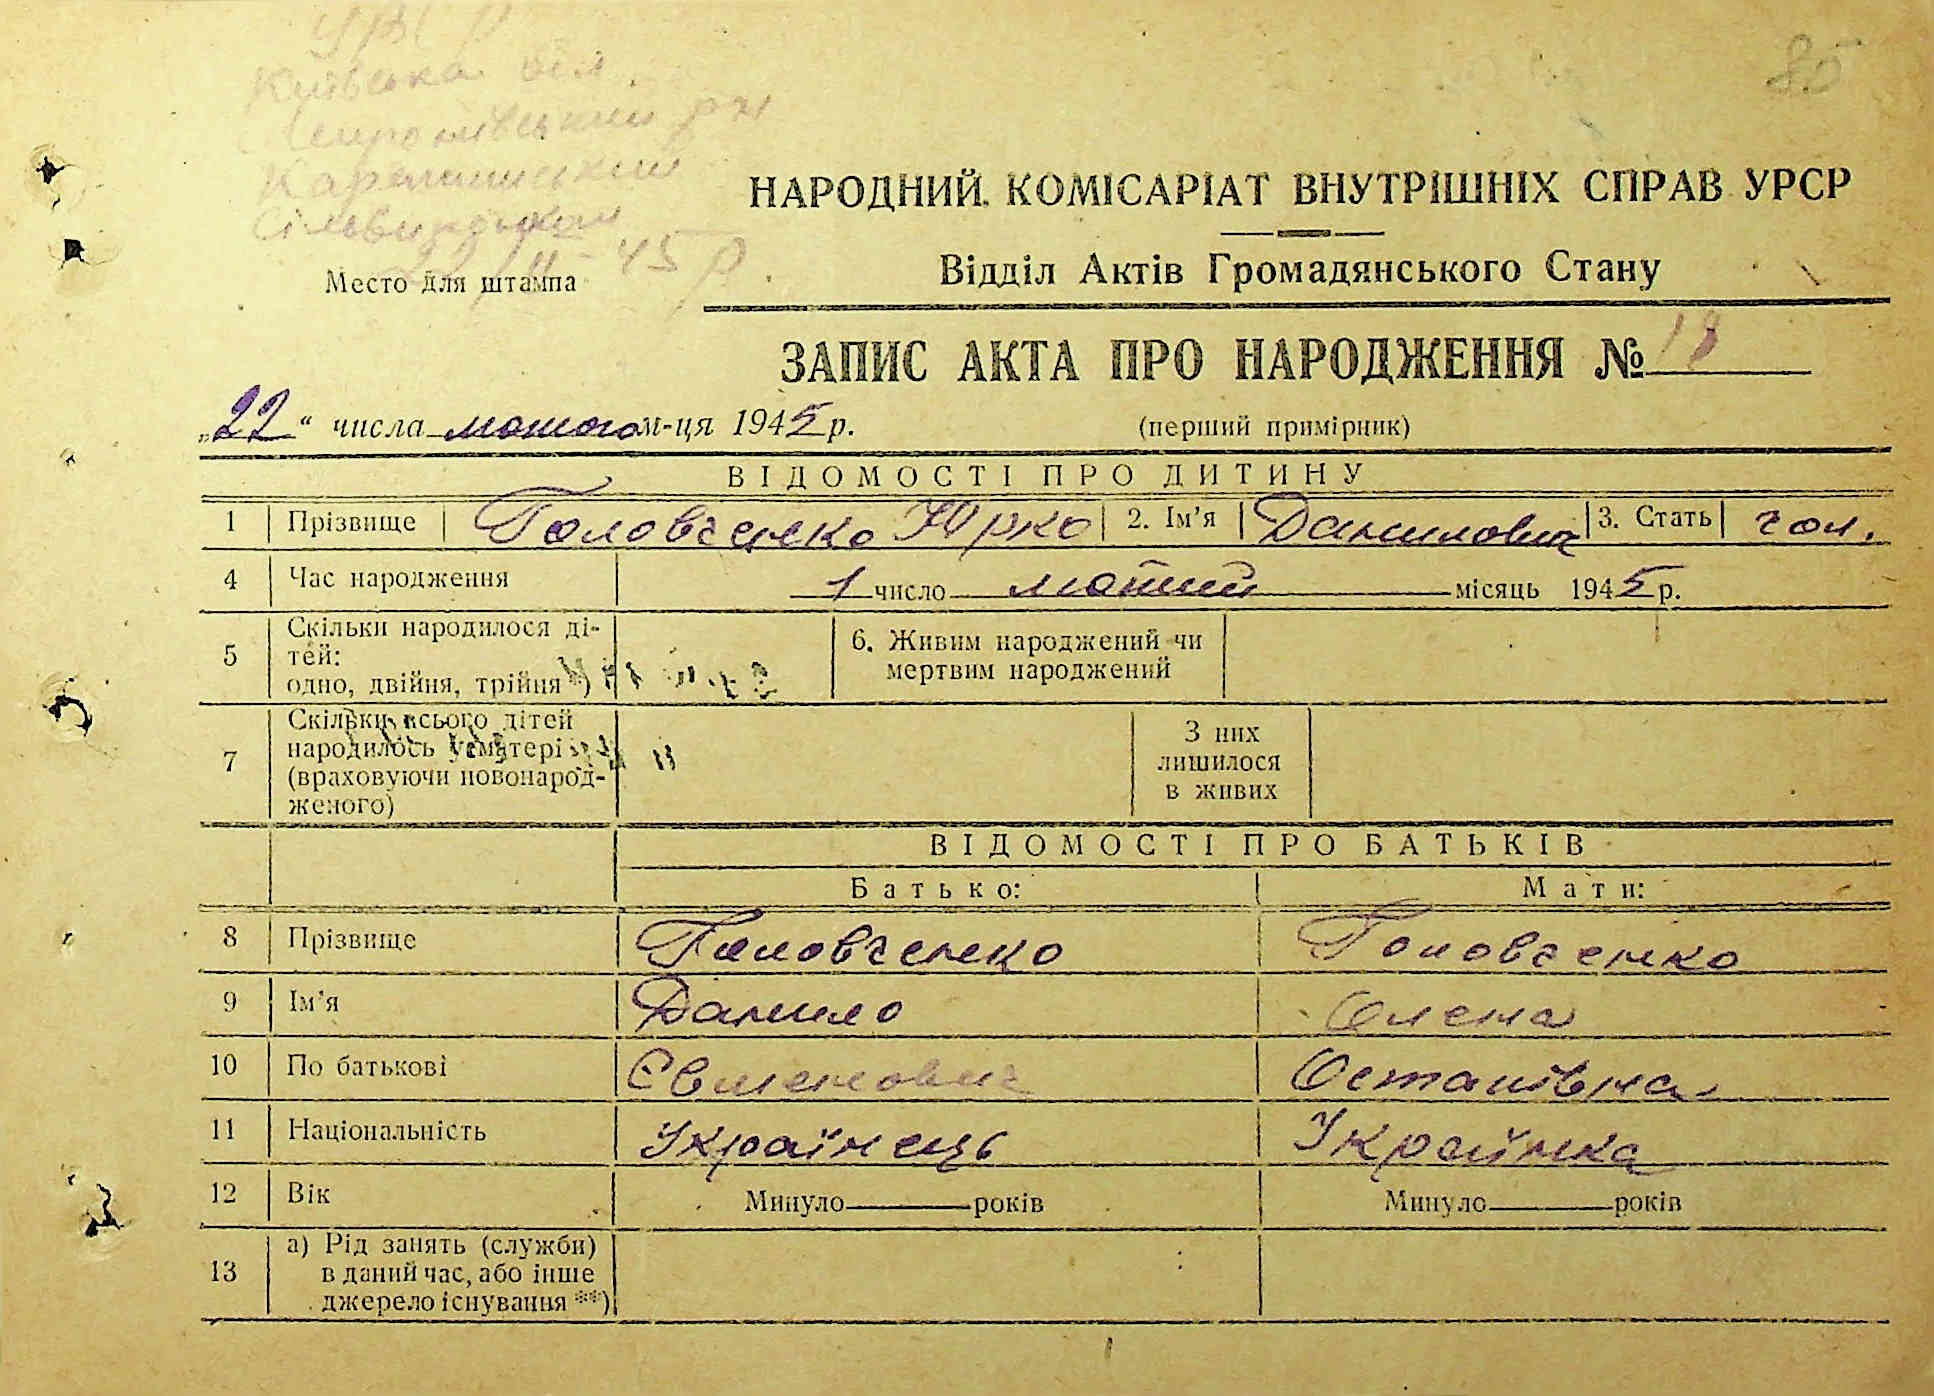 УРСР
Київська обл.
рн
сільвиконком
22/II-45 р.
85
НАРОДНИЙ КОМІСАРІАТ ВНУТРІШНІХ СПРАВ УРСР
Відділ Актів Громадянського Стану
Место для штампа
ЗАПИС АКТА ПРО НАРОДЖЕННЯ № 18
„22“ числа лютого м-ця 1945 р.
(перший примірник)
ВІДОМОСТІ ПРО ДИТИНУ
1 Прізвище Головченко Юрко 2. Ім’я Данилович 3. Стать чол.
4 Час народження 1 число лютий місяць 1945 р.
5 Скільки народилося ді-
тей:
одно, двійня, трійня *)
6. Живим народжений чи
мертвим народжений
7 Скільки всього дітей
народилось у матері
(враховуючи новонарод-
женого)
З них
лишилося
в живих
ВІДОМОСТІ ПРО БАТЬКІВ
Батько: Мати:
8 Прізвище Головченко Головченко
9 Ім’я Данило Олена
10 По батькові Євменович Остапівна
11 Національність Українець Українка
12 Вік Минуло років Минуло років
13 а) Рід занять (служби)
в даний час, або інше
джерело існування **)